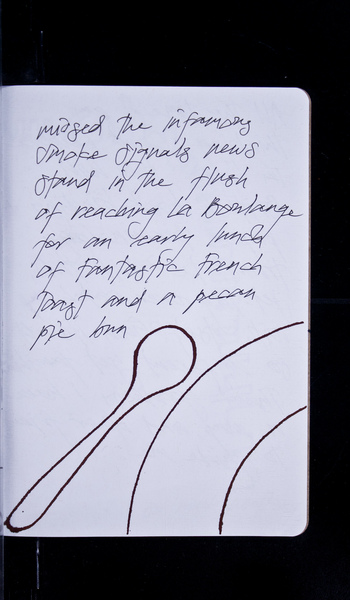 missed the infamous
smoke signals news
stand in the flush
of reaching La Boulange
for an early lunch
of fantastic french
toast and a pecan
pie bun